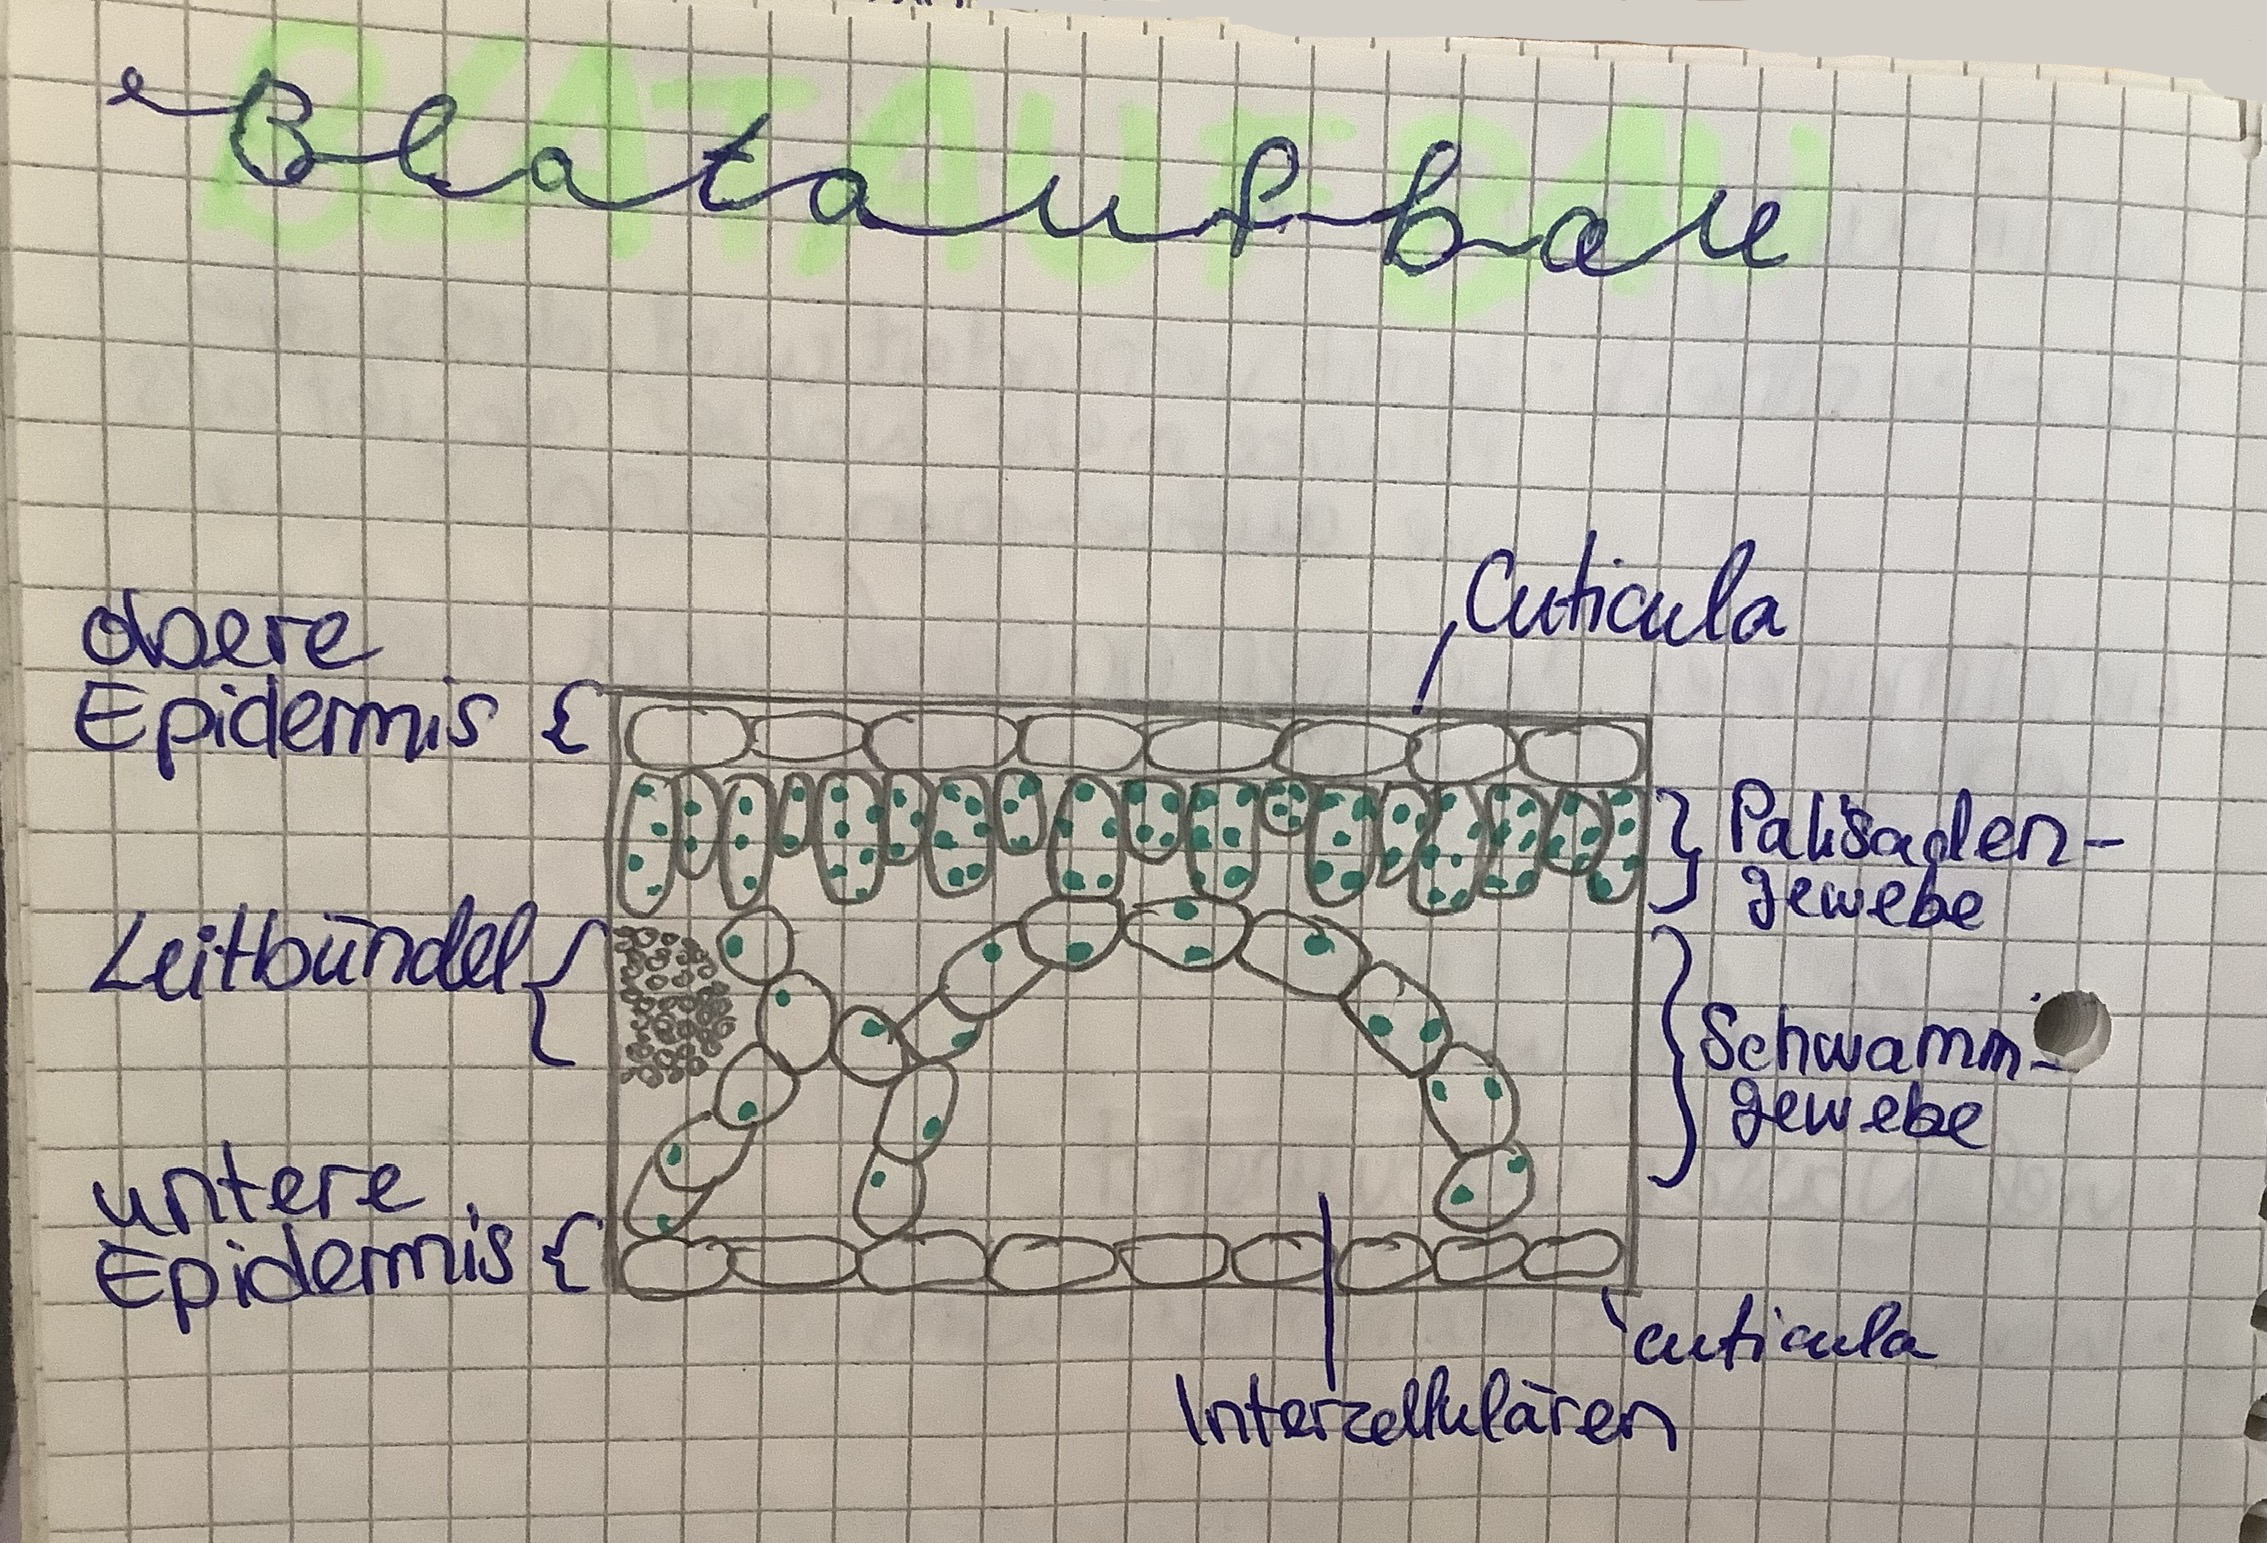 Blataufbau
BLATAUFBAU
Cuticula
obere
Epidermis
Palisaden-
gewebe
Leitbündel
Schwamm-
gewebe
untere
Epidermis
cuticula
Interzellulären